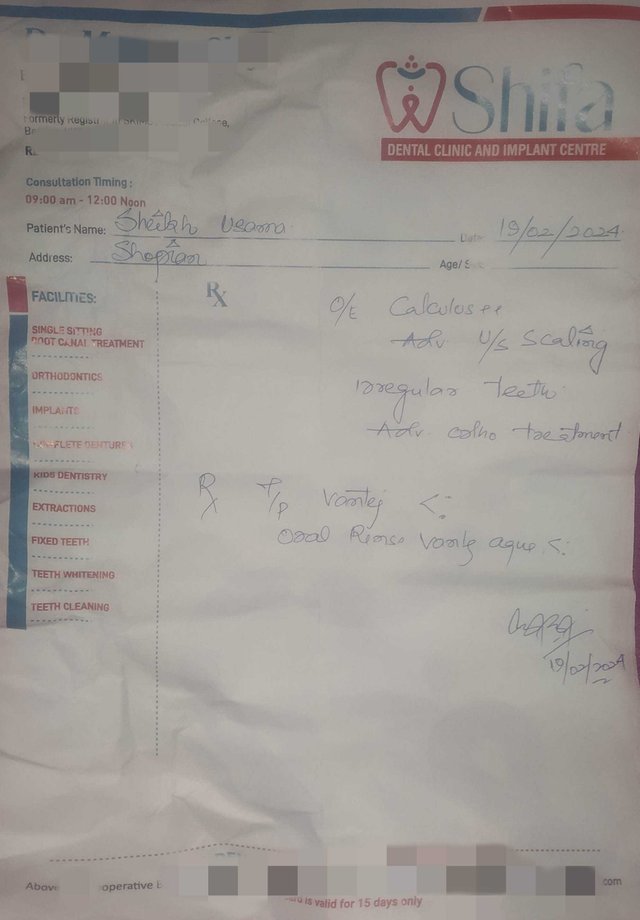 Shifa
DENTAL CLINIC AND IMPLANT CENTRE
Formerly
College,
Consultation Timing :
09:00 am - 12:00 Noon
Patient's Name: Sheikh Usama Date 19/02/2024
Address: Shopian Age/
FACILITIES:
SINGLE SITTING
ROOT CANAL TREATMENT
ORTHODONTICS
IMPLANTS
COMPLETE DENTURES
KIDS DENTISTRY
EXTRACTIONS
FIXED TEETH
TEETH WHITENING
TEETH CLEANING
Rx
O/E Calculus ++
Adv. U/S Scaling
Irregular Teeth
Adv. ortho treatment
Rx T/P Vantej <:
Oral Rinse Vantej aqua <:
19/02/2024
Above operative
.com
is valid for 15 days only